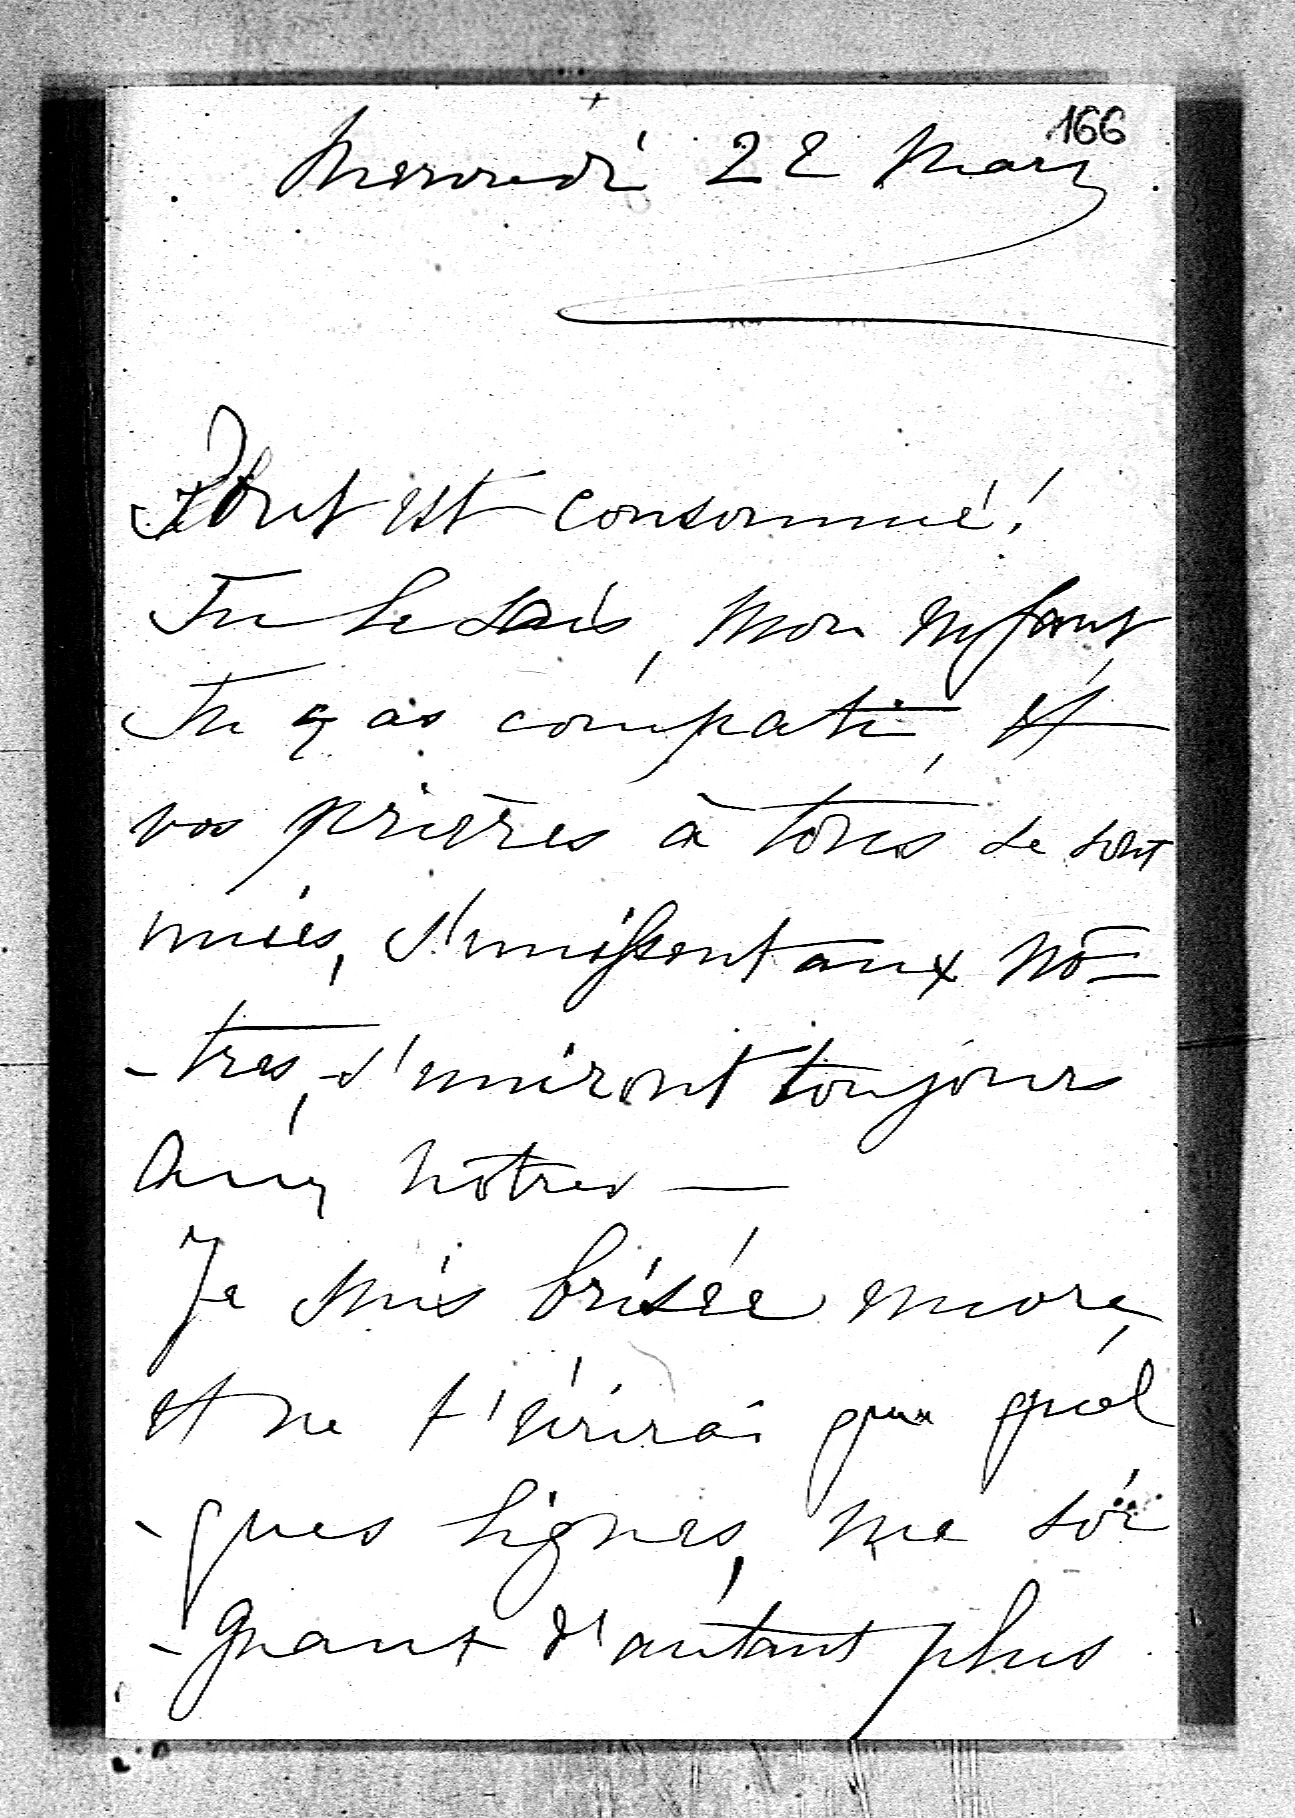 166
Mercredi 22 Mars
Tout est consommé!
Tu le sais, mon enfant,
Tu y as compati, et
vos prières à tous se sont
unies, s'unissent aux nô-
-tres, s'uniront toujours
aux nôtres —
Je suis brisée encore,
et ne t'écrirai que quel
-ques lignes, me soi
-gnant d'autant plus